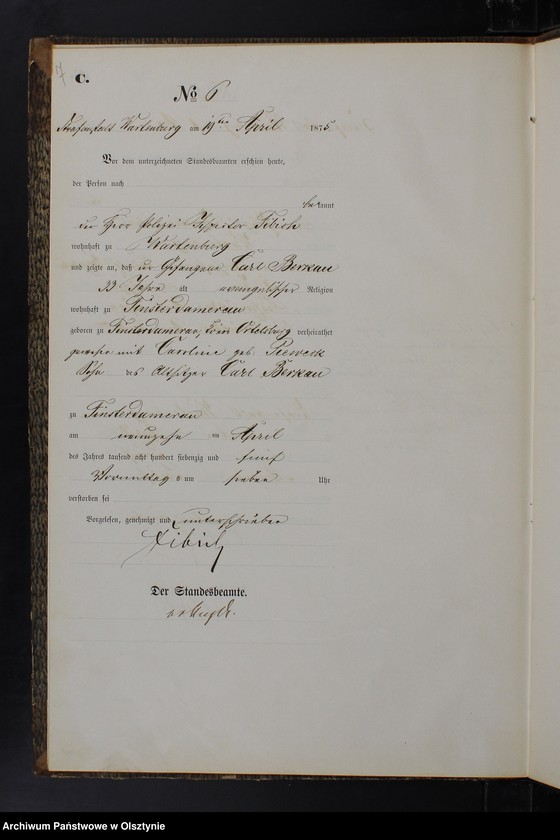 17
C.
No 6
Strafanstalt Wartenburg am 19ten April 1875
Vor dem unterzeichneten Standesbeamten erschien heute,
der Person nach
bekannt
der Herr Polizei Inspector Tibich
wohnhaft zu Wartenburg
und zeigte an, daß der Gefangene Carl Berkau
33 Jahre alt evangelischer Religion
wohnhaft zu Finsterdamerau
geboren zu Finsterdamerau, Kreis Ortelsburg verheirathet
gewesen mit Caroline geb.
Sohn des Altsitzer Carl Berkau
zu Finsterdamerau
am neunzehn ten April
des Jahres tausend acht hundert siebenzig und fünf
Vormittag s um sieben Uhr
verstorben sei
Vorgelesen, genehmigt und unterschrieben
Tibich
Der Standesbeamte.
Archiwum Państwowe w Olsztynie